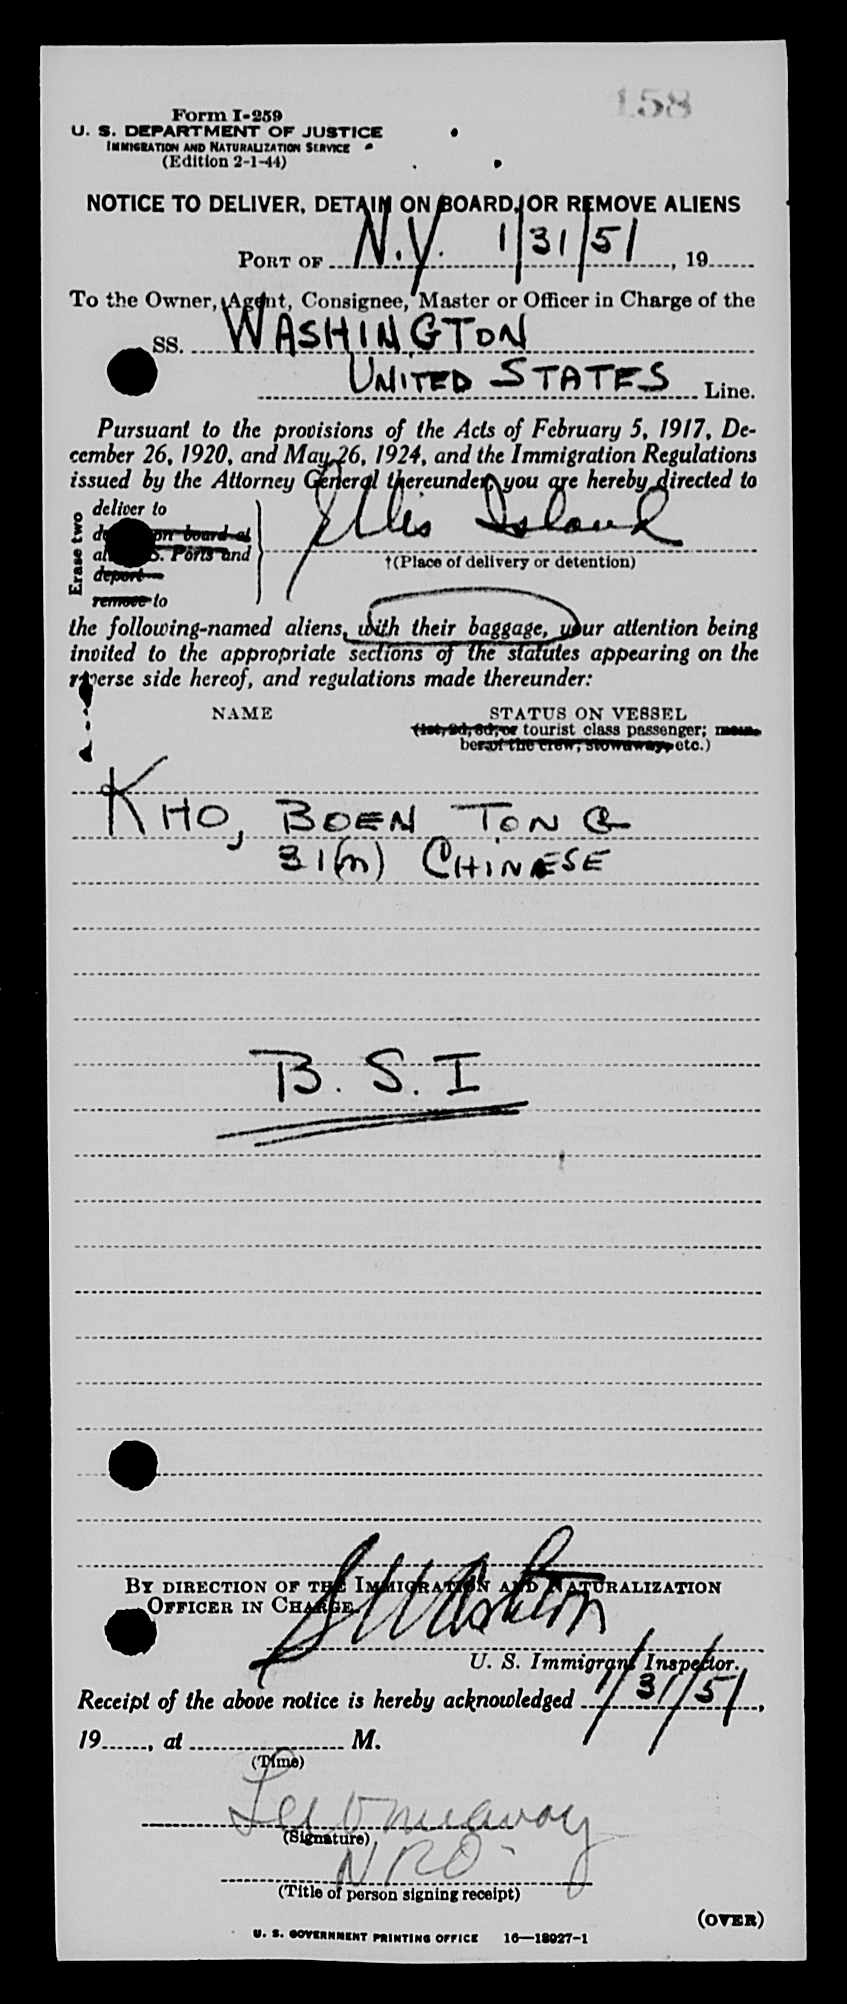 158
Form I-259
U. S. DEPARTMENT OF JUSTICE
IMMIGRATION AND NATURALIZATION SERVICE
(Edition 2-1-44)
NOTICE TO DELIVER, DETAIN ON BOARD, OR REMOVE ALIENS
PORT OF N.Y. 1/31/51, 19
To the Owner, Agent, Consignee, Master or Officer in Charge of the
SS. WASHINGTON
UNITED STATES Line.
Pursuant to the provisions of the Acts of February 5, 1917, De-
cember 26, 1920, and May 26, 1924, and the Immigration Regulations
issued by the Attorney General thereunder, you are hereby directed to
Erase two
deliver to
on board at
S. Ports and
deport
remove to
Ellis Island
†(Place of delivery or detention)
the following-named aliens, with their baggage, your attention being
invited to the appropriate sections of the statutes appearing on the
reverse side hereof, and regulations made thereunder:
NAME STATUS ON VESSEL
(1st, 2d, 3d, or tourist class passenger; mem-
ber of the crew, stowaway, etc.)
KHO, BOEN TONG
31(m) CHINESE
B.S.I
BY DIRECTION OF THE IMMIGRATION AND NATURALIZATION
OFFICER IN CHARGE.
U. S. Immigrant Inspector.
Receipt of the above notice is hereby acknowledged 1/31/51,
19, at M.
(Time)
(Signature)
NRO
(Title of person signing receipt)
(OVER)
U. S. GOVERNMENT PRINTING OFFICE 16—18027-1